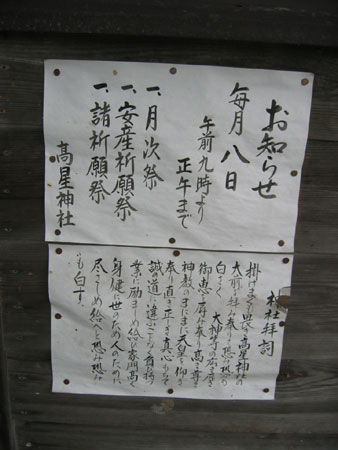 お知らせ
毎月八日
午前九時より
正午まで
一、月次祭
一、安産祈願祭
一、諸祈願祭
高星神社
神社拝詞
掛けまくも畏き高星神社の
大前を拝み奉りて恐み恐みも
白さく
大神等の広き厚き
御恵を辱み奉り高き尊き
神教のまにまに天皇を仰ぎ
奉り直き正しき真心もちて
誠の道に違ふことなく負ひ持つ
業に励ましめ給ひ家門高く
身健に世のため人のために
尽さしめ給へと恐み恐み
も白す